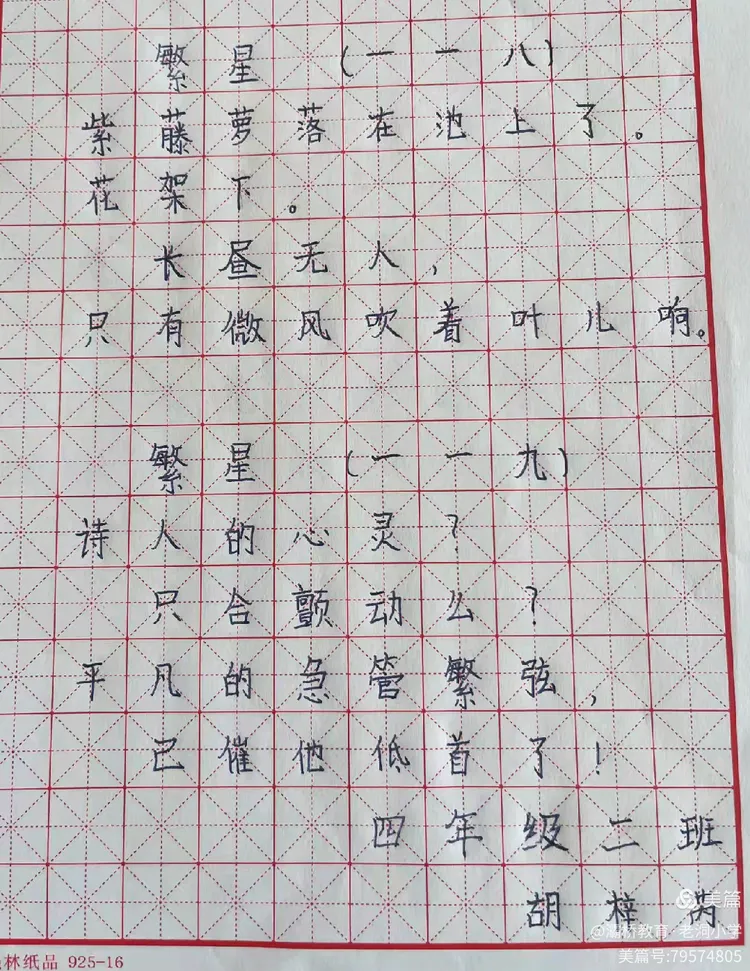 繁星 (一一八)
紫藤萝落在池上了。
花架下。
长昼无人,
只有微风吹着叶儿响。
繁星 (一一九)
诗人的心灵?
只合颤动么?
平凡的急管繁弦,
已催他低首了!
四年级二班
胡梓芮
美篇
@灞桥教育·老洞小学
美篇号:79574805
林纸品 925-16